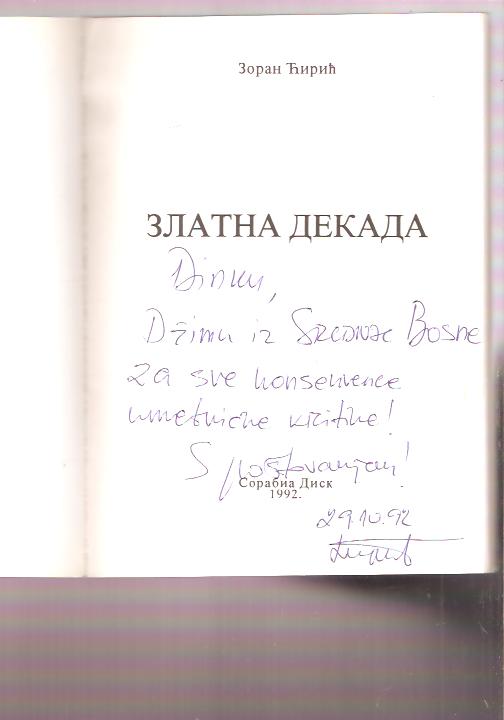 Зоран Ћирић
ЗЛАТНА ДЕКАДА
Dinku,
Džimu iz Srednje Bosne
za sve konsekvence
umetničke kritike!
S poštovanjem!
Сорабиа Диск
1992.
29.10.92